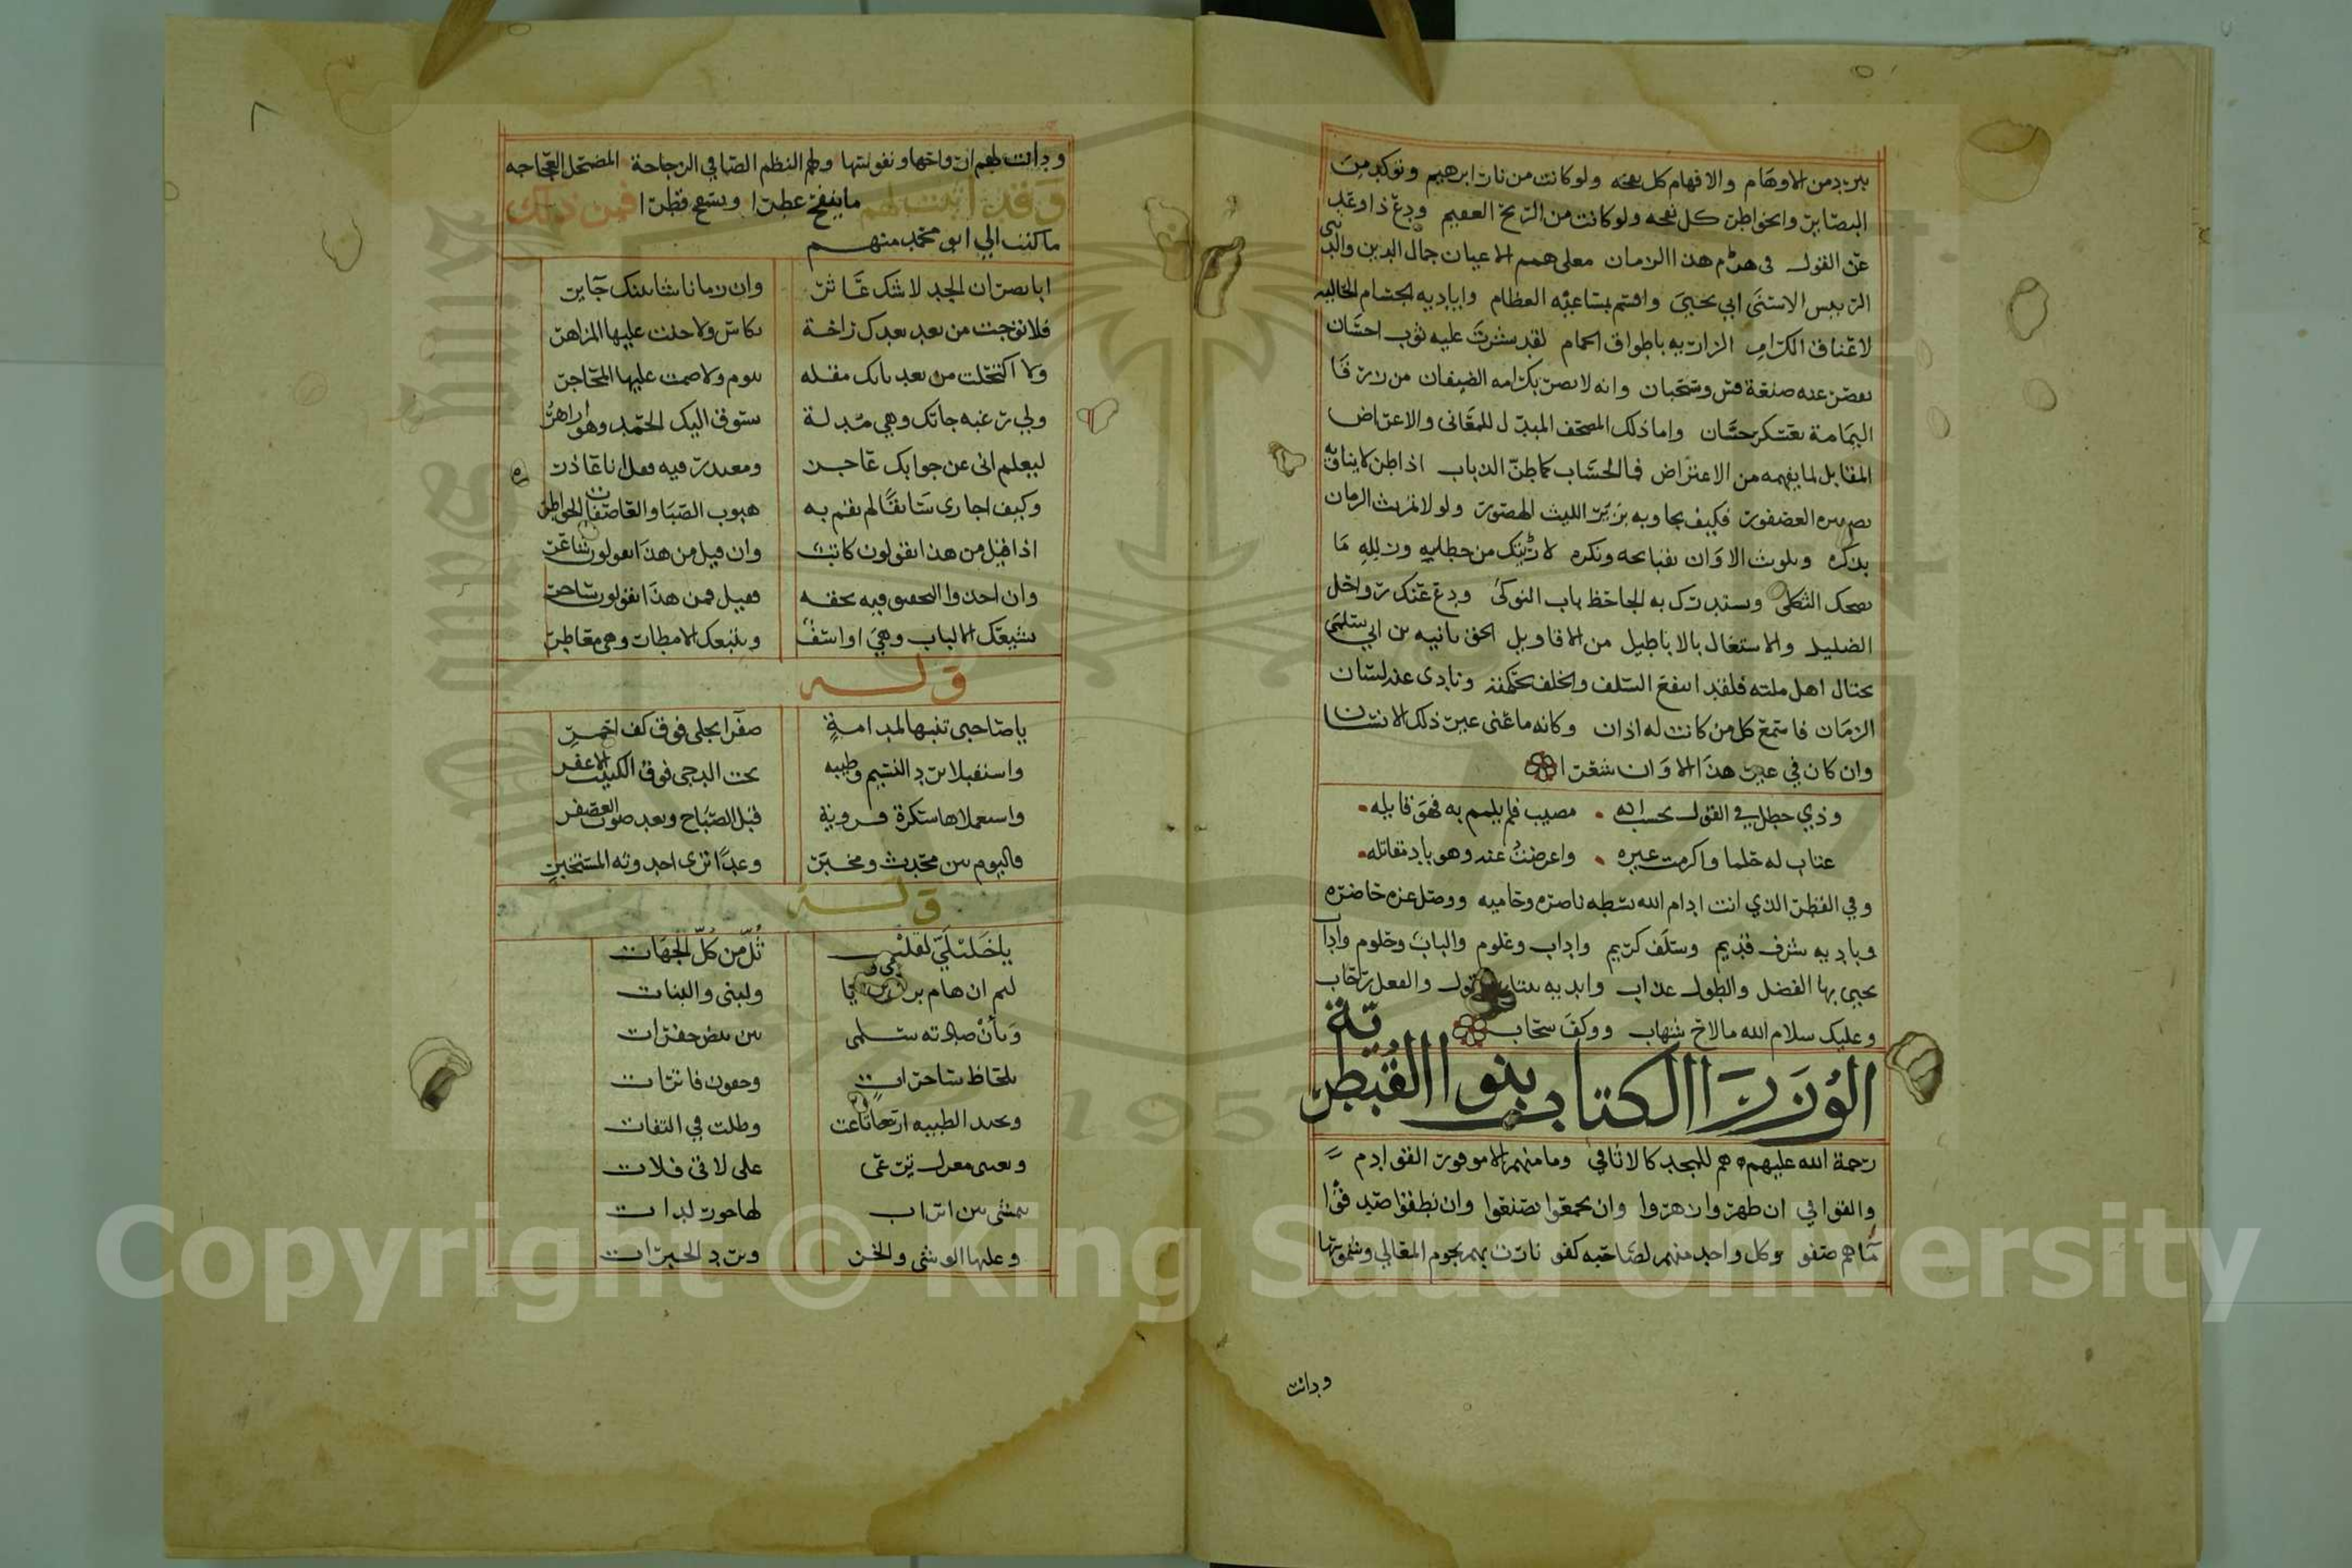 يبرد من الاوهام والافهام كل لفحه ولو كانت من نار ابرهيم وتوكد من
البصاير والخواطر كل نفحه ولو كانت من الريح العقيم ودع ذا وعد
عن القول في هرم هذا الزمان معلى همم الاعيان جمال الدين والدنيى
الرييس الاسنى ابي يحيى واقسم بمساعيه العظام واياديه الجسام الحاليه
لاعناق الكرام الزاريه باطواق الحمام لقد نشرت عليه ثوب احسان
تقصر عنه صنعة قس وسحبان وانه لا بصر بكرامه الضيفان من زرقا
اليمامة بعسكر حسان واما ذلك المصحف المبدل للمعاني والاعراض
المقابل لما يفهمه من الاعتراض فما لحساب كما طن الذباب اذا طن لا ينافيه
العصفور فكيف يجاوبه بزئير الليث الهصور ولولا الزمان
بذكره وتلوث الاوان بقبايحه ونكره لاريتك من خطله وزلله ما
يضحك الثكلى ويستدرك به الجاحظ باب النوكى ودع عنك
الضليل والاستغال بالاباطيل من الاقاويل الحق بانيه بن ابي سلمى
اهل ملته فلقد انتفع السلف والخلف بحكمته ونادى عند لسان
الزمان فاستمع كل من كانت له اذان وكانه ما عنى عير ذلك الانسان
وان كان في عير هذا الاوان شعرا
وذي خطل في القول يحسب انه مصيب فلم يلمم به فهو قايله
عبات له حلما واكرمت عيره واعرضت عنه وهو باد مقاتله
وفي القطر الذي انت ادام الله بسطه ناصره وحاميه ووصل عزه حاضره
وباديه شرف قديم وسلف كريم واداب وعلوم والباب وحلوم واداب
يحيى بها الفضل والطول عذاب
وعليك سلام الله ما لاح شهاب ووكف سحاب
الوزرا الكتاب بنوا القبطرية
رحمة الله عليهم هم للمجد كالاثافي وما منهم الا موفور القوادم
والخوافي ان ظهروا زهروا وان تجمعوا تضوعوا وان نطقوا صدقوا
ماهم صفو وكل واحد منهم لصاحبه كفو نارت بهم نجوم المعالي وشموسها
ودانت
ودانت لهم ارواحها ونفوسها ولهم النظم الصافي الزجاجة المضمحل العجاجه
وقد اثبت لهم ما ينفح عطرا ويسح قطرا فمن ذلك
ما كتب الى ابو محمد منهم
ابا نصر ان الجد لا شك عاثر وان زمانا شا بينك جاير
فلا توجت من بعد بعدك راحة بكاس ولا حلت عليها المزاهر
ولا اكتحلت من بعد نايك مقله بنوم ولا ضمت عليها المحاجر
ولي رغبه جاتك وهي مدلة تسوق اليك الحمد وهو ازاهر
ليعلم اني عن جوابك عاجز ومعذر فيه فهل انا عاذر
وكيف اجاري سابقا لم يقم به هبوب الصبا والعاصفات الخواطر
اذا قيل من هذا يقولون كاتب وان قيل من هذا يقولون شاعر
وان اخذوا التحقيق فيه بحقه فقيل فمن هذا يقولون ساحر
تشيعك الالباب وهي اواسف وتتبعك الامطات وهي مقاطر
وله
يا صاحبي تنبها لمدامة صفرا تجلى فوق كف احمر
واستقبلا برد النسيم وطيبه تحت الدجى فوق الكثيب الاعفر
واستعملاها سكرة قروية قبل الصباح وبعد صوت العصفر
فاليوم بين محدث ومخبر وغدا ترى احدوثه المستخبر
وله
يا خليلي لقلبي ثل من كل الجهات
ليم ان هام بريا ولبنى والبنات
وبان صادته سلمى بين بيض خفرات
بلحاظ ساحرات وجفون فاترات
وبجيد الظبيه ارتاعت وظلت في التفات
وبعيني مغزل ترعى على لا في فلات
تمشي بين اتراب لها حور لدات
وعليها الوشي والخز وبرد الحبرات
٨
Copyright © King Saud University
1957